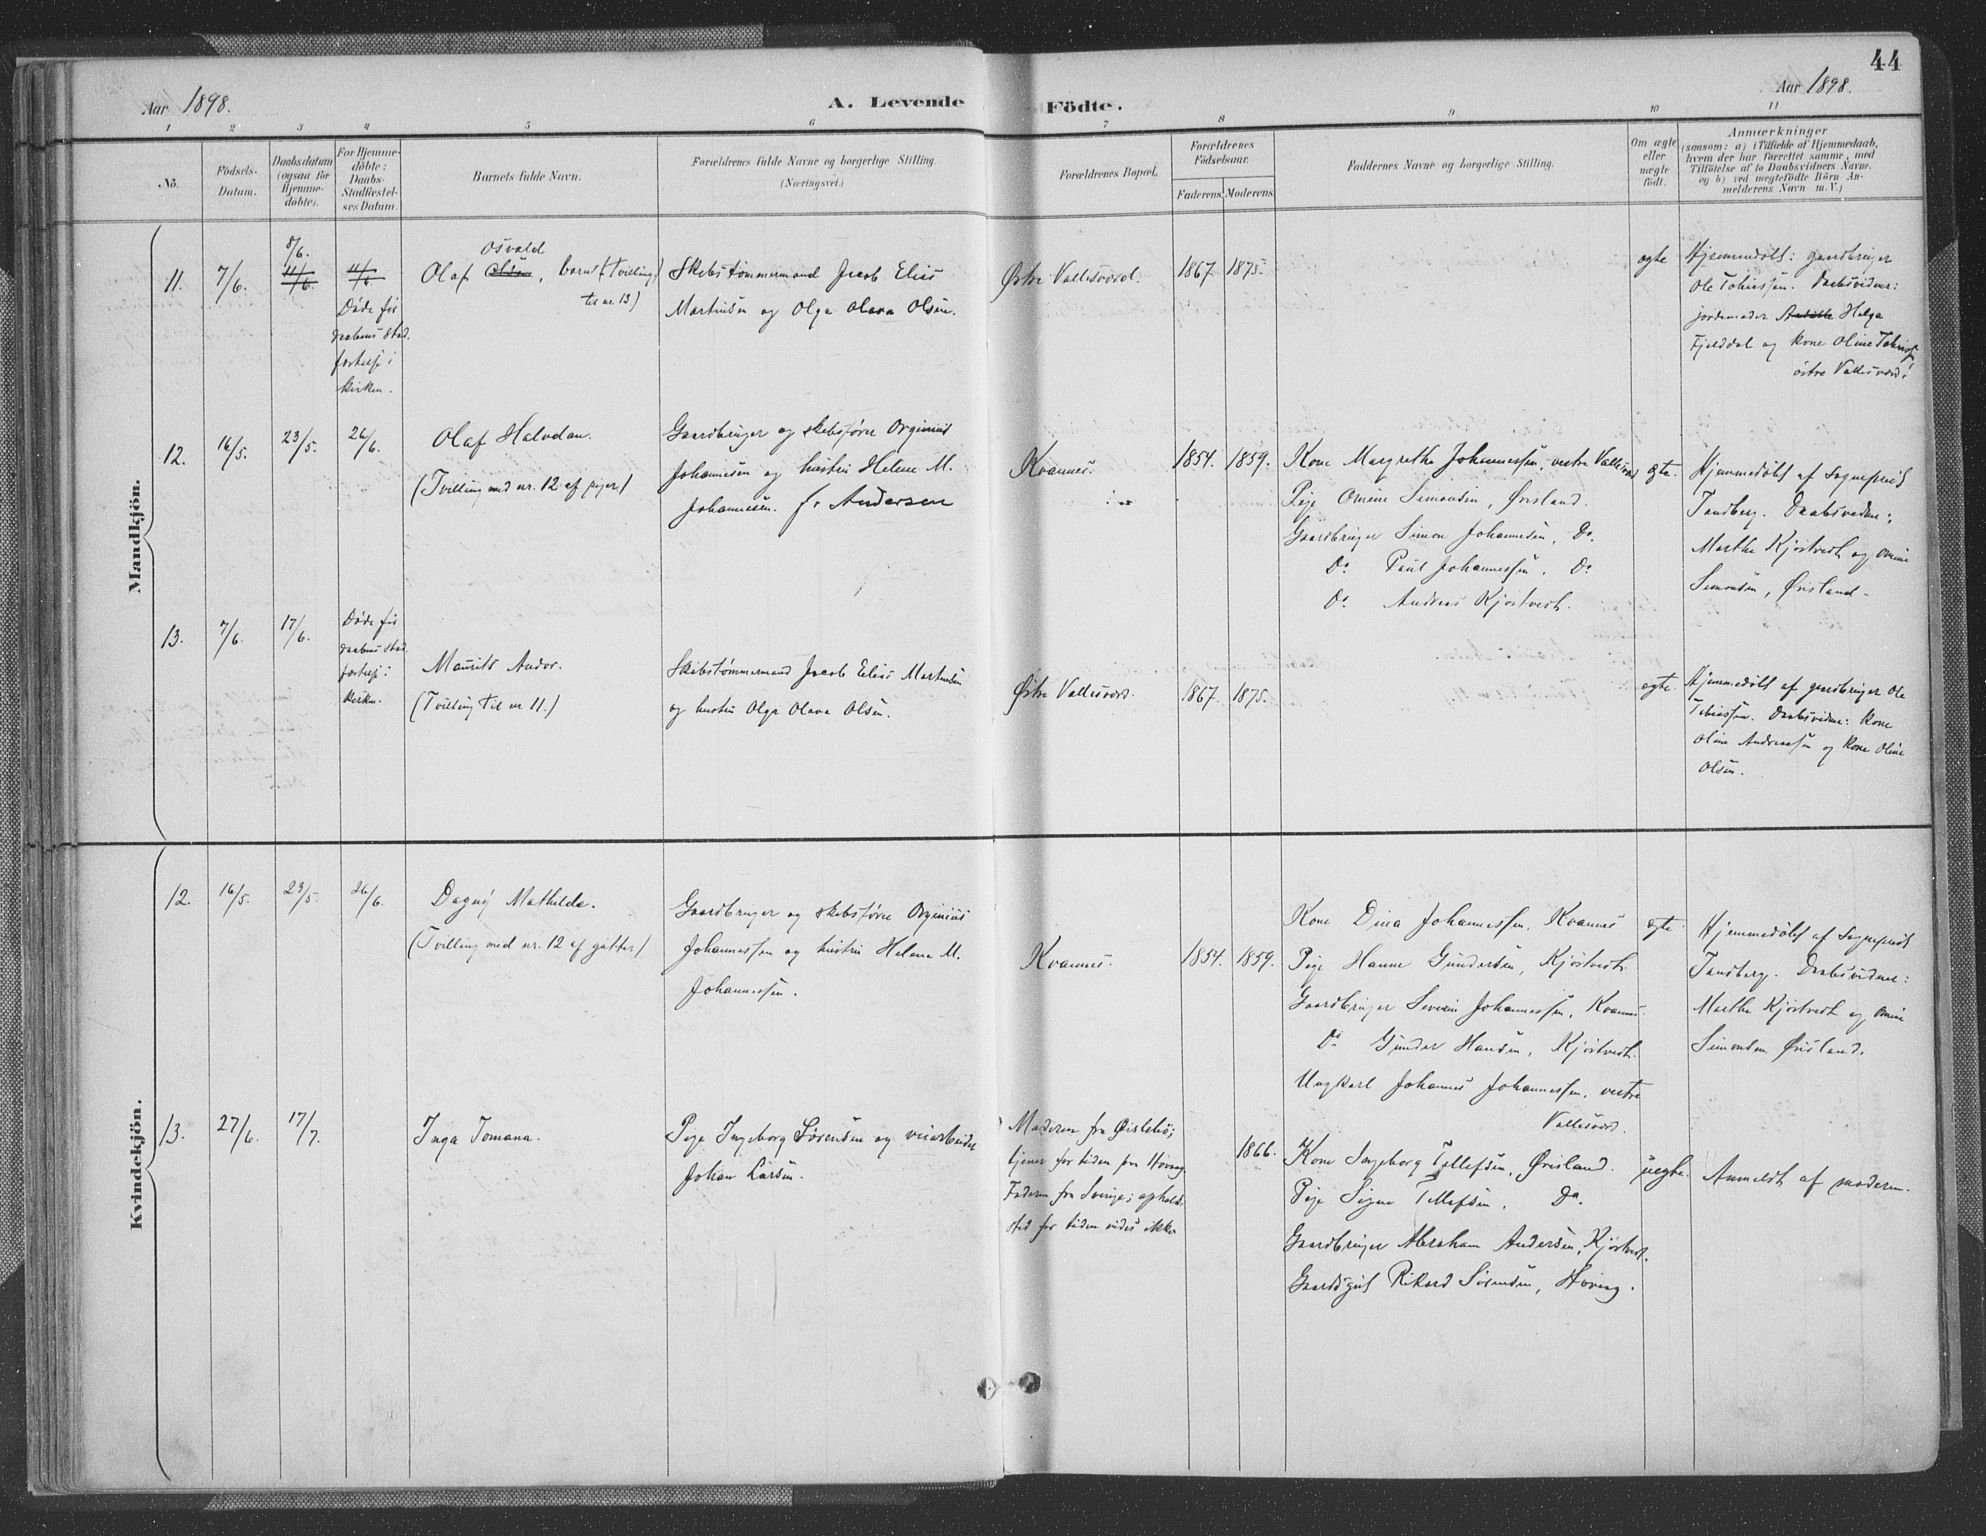 44
Aar 1898.
A. Levende Födte.
Aar 1898.
1 2 3 4 5 6 7 8 9 10 11
No.
Födsels-Datum.
Daabsdatum (ogsaa for Hjemme-döbte).
For Hjemme-döbte: Daabs-Stadfæstel-ses Datum.
Barnets fulde Navn.
Forældrenes fulde Navne og borgerlige Stilling.
(Næringsvei.)
Forældrenes Bopæl.
Forældrenes Födselsaar.
Faderens. Moderens.
Faddernes Navne og borgerlige Stilling.
Om ægte eller uægte födt.
Anmærkninger
(saasom: a) i Tilfælde af Hjemmedaab, hvem der har forrettet samme, med Tilföielse af to Daabsvidners Navne. og b) ved uægtefödte Börn An-melderens Navn m. V.)
Mandkjön.
11.
7/6.
8/6.
11/6.
11/6
Døde før
daabens stad
fæstelse i
kirken.
Osvald
Olaf Olsen, barn (Tvilling
til nr. 13)
Skibstømmermand Jacob Elias
Martinsen og Olga Olava Olsen.
Østre Vallesværd.
1867. 1875.
ægte
Hjemmedøbt: gaardbruger
Ole Tobiassen. Daabsvidner:
jordemoder Helga
Fjelddal og kone Oline Tobiass
østre Vallesværd.
12.
16/5.
23/5.
26/6.
Olaf Halvdan.
(Tvilling med nr. 12 af piger)
Gaardbruger og skibsfører Orginius
Johannesen og hustru Helene M.
Johannesen. f. Andersen
Kvannes.
1854. 1859.
Kone Margrethe Johannessen, vestre Vallesværd
Pige Omine Simonsen, Ørsland.
Gaardbruger Simon Johannesen, Do.
Do Paul Johannessen, Do
Do. Andreas Kjøstvedt.
ægte.
Hjemmedøbt af Sogneprest
Tandberg. Daabsvidner:
Marthe Kjøstvedt og Omine
Simonsen, Ørsland.
13.
7/6.
17/6.
Døde før
daabens stad
fæstelse i
kirken.
Maurits Andor.
(Tvilling til nr 11.)
Skibstømmermand Jacob Elias Martinsen
og hustru Olga Olava Olsen.
Østre Vallesværd.
1867. 1875.
ægte
Hjemmedøbt af gaardbruger Ole
Tobiassen. Daabsvidner: Kone
Oline Andreassen og Kone Oline
Olsen.
Kvindekjön.
12.
16/5.
23/5.
26/6.
Dagny Mathilde.
(Tvilling med nr. 12 af gutter)
Gaardbruger og skibsfører Orginius
Johannessen og hustru Helene M.
Johannessen.
Kvannes.
1854. 1859.
Kone Dina Johannessen, Kvannes
Pige Hanne Gundersen, Kjøstvedt.
Gaardbruger Severin Johannessen, Kvannes
Do Gunder Hansen, Kjøstvedt.
Ungkarl Johannes Johannessen, vestre
Vallesværd.
ægte.
Hjemmedøbt af Sogneprest
Tandberg. Daabsvidner:
Marthe Kjøstvedt og Omine
Simonsen Ørsland.
13.
27/6.
17/7.
Inga Tomana.
Pige Ingeborg Sørensen og veiarbeider
Johan Larsen.
Moderen fra Øistebø;
tjener for tiden paa Høvag
Faderen fra Sverige; opholds
sted for tiden vides ikke
1866.
Kone Ingeborg Tellefsen, Ørsland.
Pige Signe Tellefsen. Do.
Gaardbruger Abraham Andersen, Kjøstvedt.
Gaardsgut Rikard Sørensen, Høvag.
uægte.
Anmeldt af moderen.